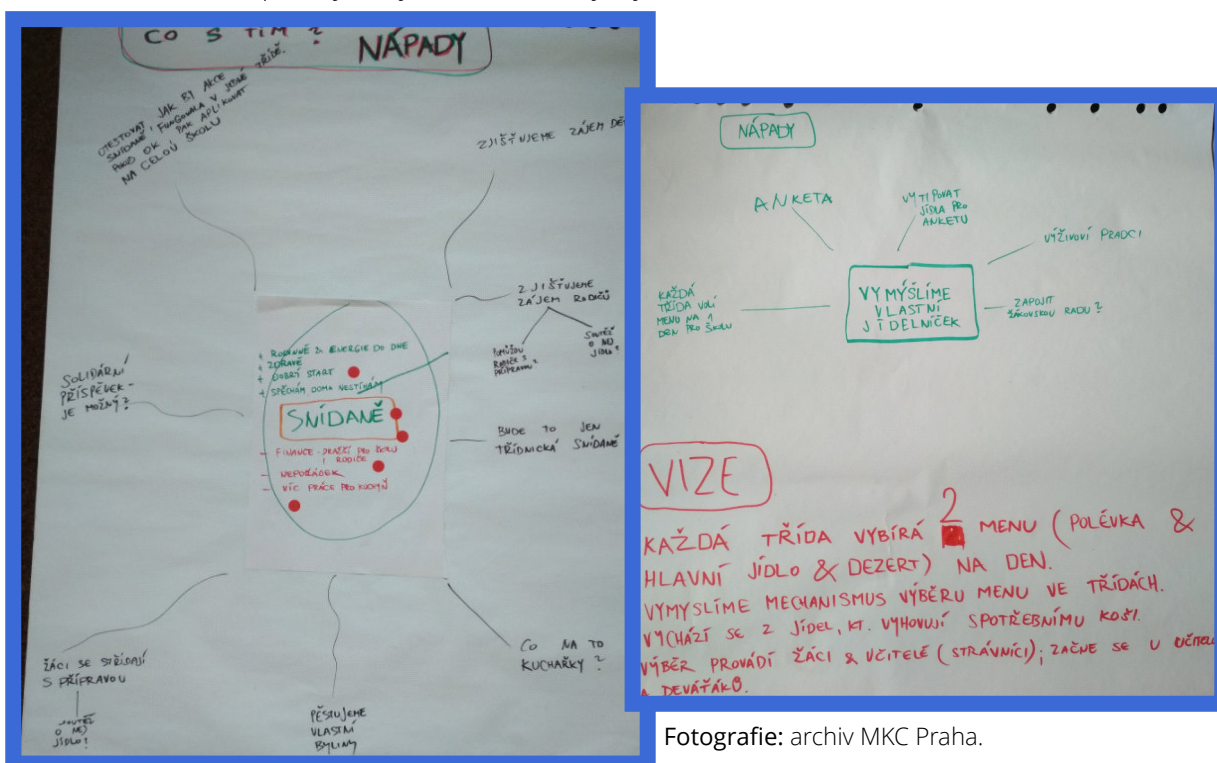 CO S TÍM?
NÁPADY
OTESTOVAT, JAK BY AKCE
SNÍDANĚ FUNGOVALA V JEDNÉ TŘÍDĚ.
POKUD OK PAK APLIKOVAT
NA CELOU ŠKOLU
ZJIŠŤUJEME ZÁJEM
ZJIŠŤUJEME
ZÁJEM RODIČŮ
POMŮŽOU
RODIČE S
PŘÍPRAVOU?
SOUTĚŽ
O NEJ
JÍDLO?
+ RODINNĚ & ENERGIE DO DNE
+ ZDRAVĚ
+ DOBRÝ START
+ SPĚCHÁM DOMA NESTÍHÁM
SNÍDANĚ
- FINANCE - DRAŽŠÍ PRO ŠKOLU
I RODIČE
- NEPOŘÁDEK
- VÍC PRÁCE PRO KUCHYŇ
SOLIDÁRNÍ
PŘÍSPĚVEK -
JE MOŽNÝ?
BUDE TO JEN
TŘÍDNICKÁ SNÍDANĚ
CO NA TO
KUCHAŘKY?
ŽÁCI SE STŘÍDAJÍ
S PŘÍPRAVOU
SOUTĚŽ
O NEJ
JÍDLO?
PĚSTUJEME
VLASTNÍ
BYLINY
NÁPADY
ANKETA
VYTIPOVAT
JÍDLA PRO
ANKETU
VÝŽIVOVÍ PRADCI
KAŽDÁ
TŘÍDA VOLÍ
MENU NA 1
DEN PRO ŠKOLU
VYMÝŠLÍME
VLASTNÍ
JÍDELNÍČEK
ZAPOJIT
ŽÁKOVSKOU RADU?
VIZE
KAŽDÁ TŘÍDA VYBÍRÁ 2 MENU (POLÉVKA &
HLAVNÍ JÍDLO & DEZERT) NA DEN.
VYMYSLÍME MECHANISMUS VÝBĚRU MENU VE TŘÍDÁCH.
VYCHÁZÍ SE Z JÍDEL, KT. VYHOVUJÍ SPOTŘEBNÍMU KOŠI.
VÝBĚR PROVÁDÍ ŽÁCI & UČITELÉ (STRÁVNÍCI); ZAČNE SE U UČITELŮ
A DEVÁŤÁKŮ.
Fotografie: archiv MKC Praha.